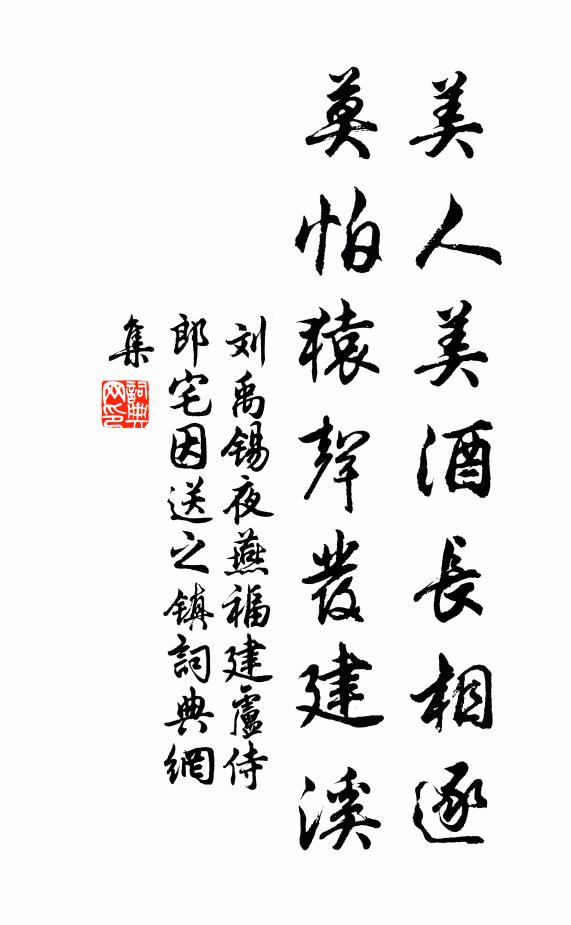 美人美酒長相逐
莫怕猿聲發建溪
刘禹锡夜燕福建盧侍
郎宅因送之镇詞典網
集
詞典
网印